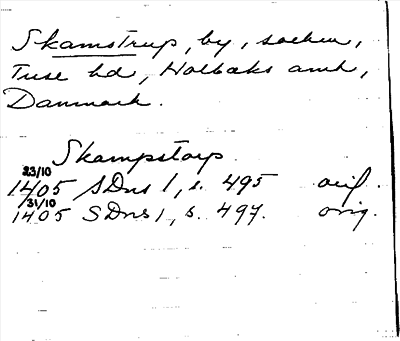 Skamstrup, by, socken,
Tuse hd, Holbaks amt,
Danmark.
Skampstorp
23/10
1405 SDns 1, s. 495 orig.
31/10
1405 SDns 1, s. 497. orig.